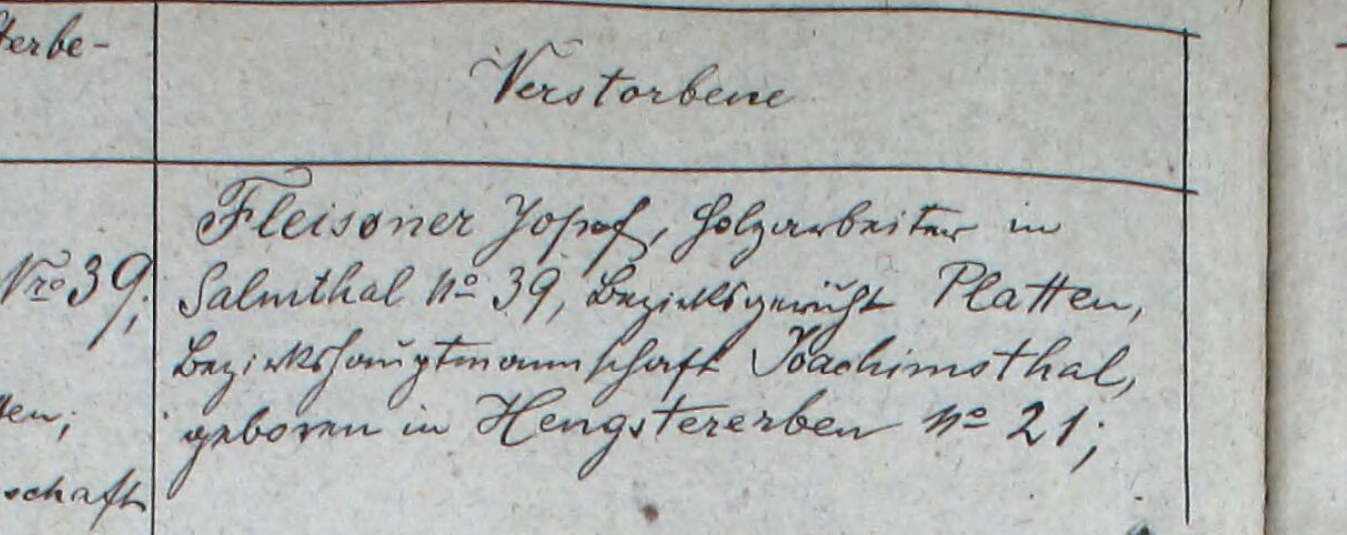 terbe-
Verstorbene
Fleissner Josef, Holzarbeiter in
Nro 39,
Salmthal No 39, Bezirksgericht Platten,
Bezirkshauptmannschaft Joachimsthal,
ten;
geboren in Hengstererben No 21;
schaft